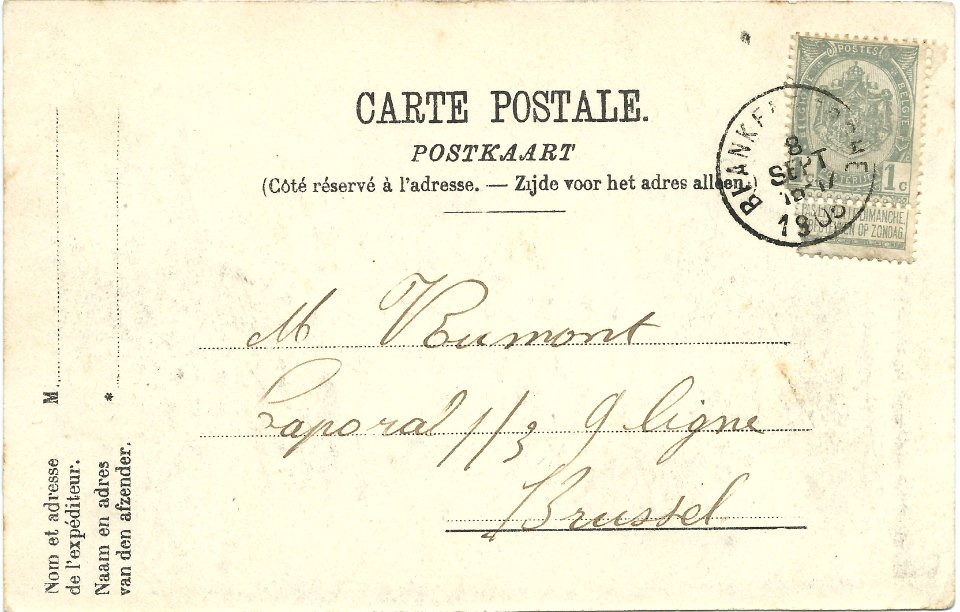 CARTE POSTALE.
POSTKAART
(Côté réservé à l'adresse. — Zijde voor het adres alleen.)
POSTES
BELGIE
1 C
DIMANCHE.
OP ZONDAG
8
SEPT
190
M
Caporal 1/3 9 ligne
Brussel
M
*
Nom et adresse
de l'expéditeur.
Naam en adres
van den afzender.